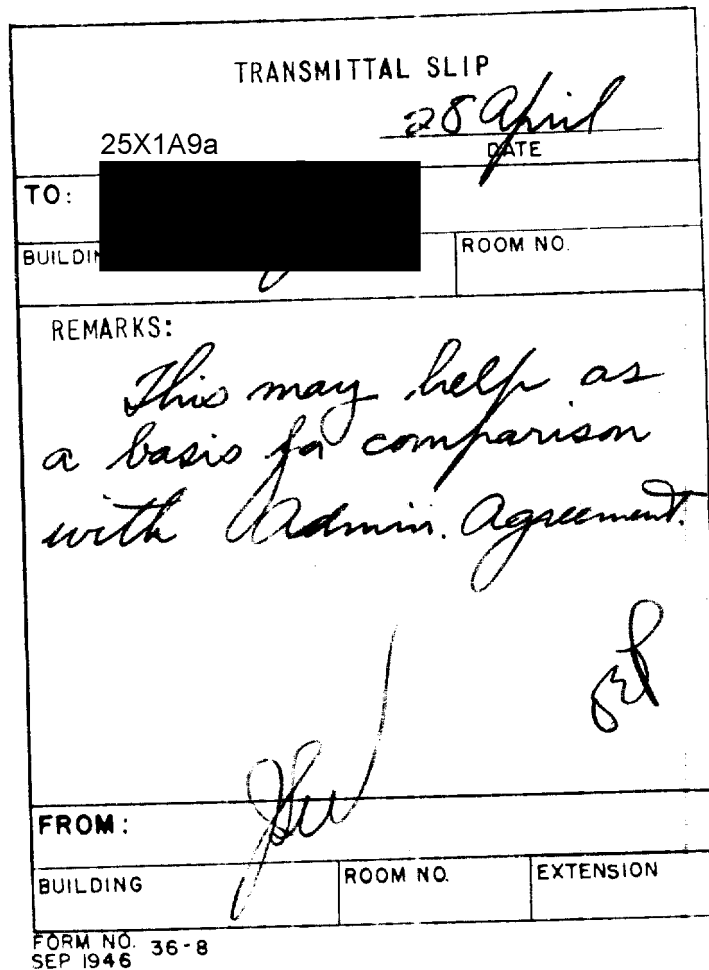 TRANSMITTAL SLIP
28 April
25X1A9a
DATE
TO:
BUILDIN
ROOM NO.
REMARKS:
This may help as
a basis for comparison
with Admin. Agreement.
FROM:
BUILDING
ROOM NO.
EXTENSION
FORM NO. 36-8
SEP 1946